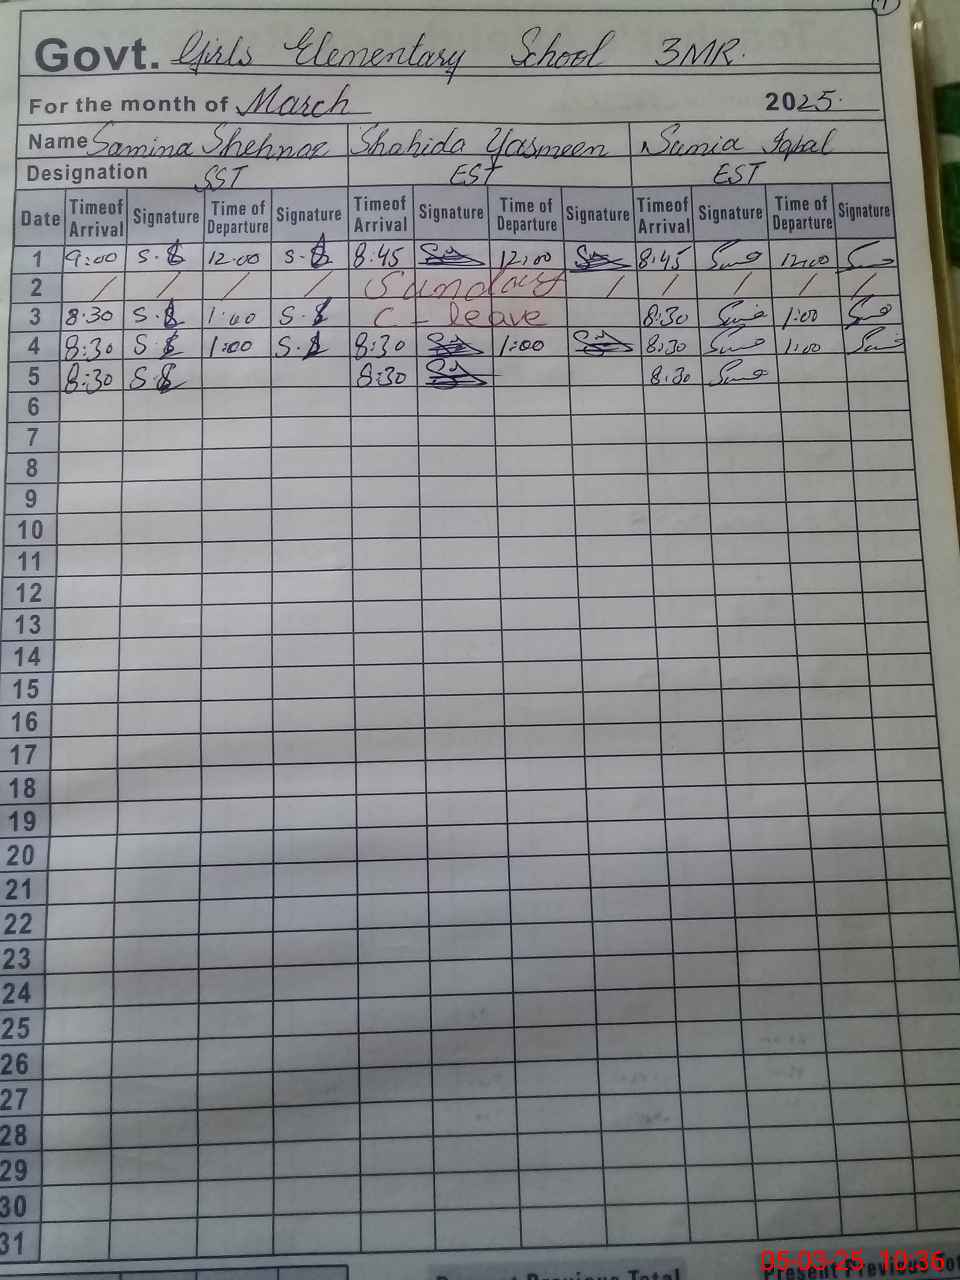 1
Govt. Girls Elementary School 3MR.
For the month of March 2025.
Name Samina Shehnaz Shahida Yasmeen Sumia Iqbal
Designation SST EST EST
Date Timeof Arrival Signature Time of Departure Signature Timeof Arrival Signature Time of Departure Signature Timeof Arrival Signature Time of Departure Signature
1 9:00 S.S 12:00 S.S 8:45 12:00 8:45 12:00
2 / / / / Sunday / / / / /
3 8:30 S.S 1:00 S.S C - leave 8:30 1:00
4 8:30 S.S 1:00 S.S 8:30 1:00 8:30 1:00
5 8:30 S.S 8:30 8:30
6
7
8
9
10
11
12
13
14
15
16
17
18
19
20
21
22
23
24
25
26
27
28
29
30
31
Present Previous Total Present Previous
05-03-25 10:36